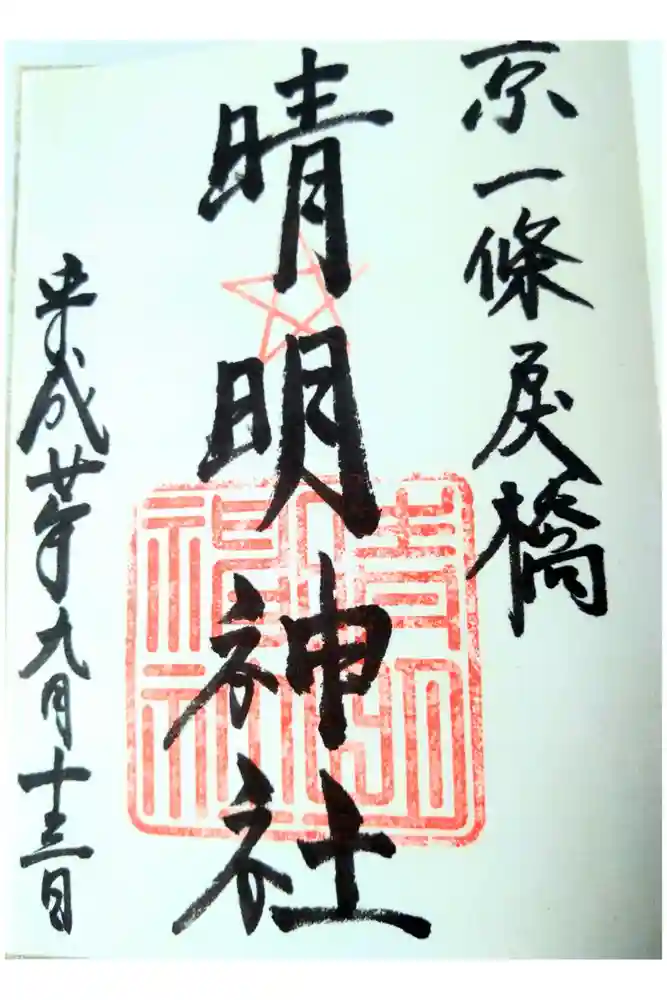 京一條戻橋
晴明神社
平成廿年九月十三日
晴明神社